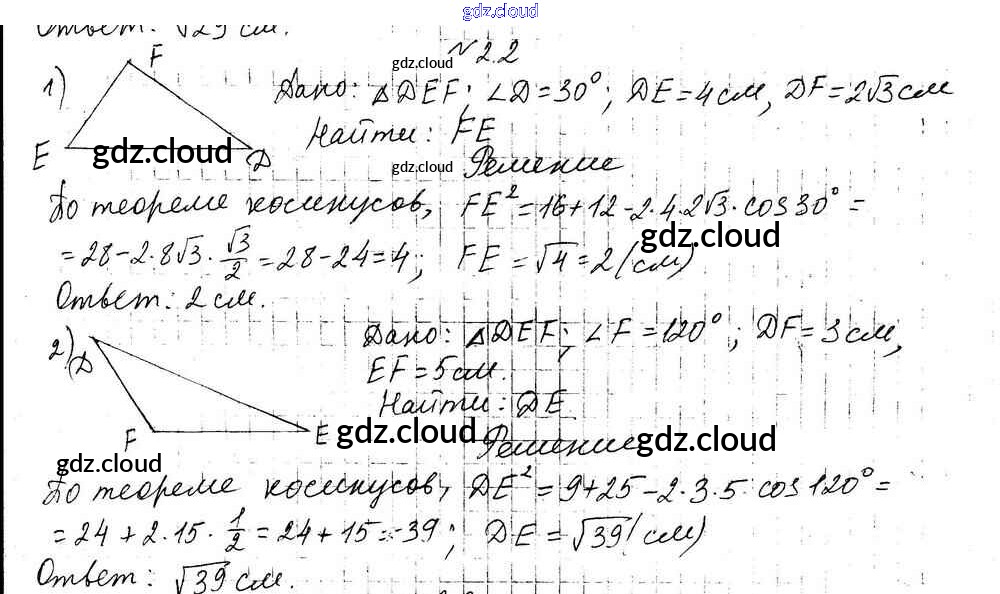 gdz.cloud
gdz.cloud
Ответ: √29 см.
№2.2
gdz.cloud
1)
F
E
D
gdz.cloud
Дано: △DEF; ∠D = 30°; DE = 4 см, DF = 2√3 см
Найти: FE
gdz.cloud
Решение
По теореме косинусов, FE² = 16 + 12 - 2·4·2√3·cos 30° =
gdz.cloud
= 28 - 2·8√3·√3/2 = 28 - 24 = 4; FE = √4 = 2 (см)
Ответ: 2 см.
2)
D
F
E
Дано: △DEF; ∠F = 120°; DF = 3 см,
EF = 5 см.
Найти: DE
gdz.cloud
Решение
gdz.cloud
gdz.cloud
По теореме косинусов, DE² = 9 + 25 - 2·3·5 cos 120° =
= 24 + 2·15·1/2 = 24 + 15 = 39; DE = √39 (см)
Ответ: √39 см.